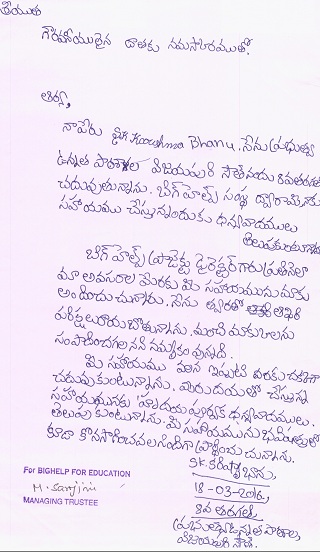 శ్రీయుత
గౌరవనీయులైన దాతకు నమస్కారములతో.
ఆర్యా,
నా పేరు SK. Karishma Bhanu. నేను ప్రభుత్వ
ఉన్నత పాఠశాల విజయపురి సౌత్ నందు 8వ తరగతి
చదువుతున్నాను. బిగ్ హెల్ప్ సంస్థ ద్వారా మీరు
సహాయము చేస్తున్నందుకు ధన్యవాదములు
తెలుపుకుంటున్నాను.
బిగ్ హెల్ప్ ప్రాజెక్టు డైరెక్టర్ గారు ప్రతినెలా
మా అవసరాల మేరకు మీ సహాయమును మాకు
అందించుచున్నారు. నేను త్వరలో
పరీక్షలు రాయబోతున్నాను. మంచి మార్కులను
సంపాదించగలనని నమ్మకం వున్నది.
మీ సహాయము వలన ఇప్పటి వరకు చక్కగా
చదువుకుంటున్నాను. మీరు దయతో చేస్తున్న
సహాయమునకు హృదయ పూర్వక ధన్యవాదములు.
తెలుపుకుంటున్నాను. మీ సహాయమును భవిష్యత్తులో
కూడా కొనసాగించవలసిందిగా ప్రార్థించుచున్నాను.
SK. కరిష్మా భాను,
18-03-2016,
8వ తరగతి,
ప్రభుత్వ ఉన్నత పాఠశాల,
విజయపురి సౌత్.
For BIGHELP FOR EDUCATION
M. Sanjini
MANAGING TRUSTEE